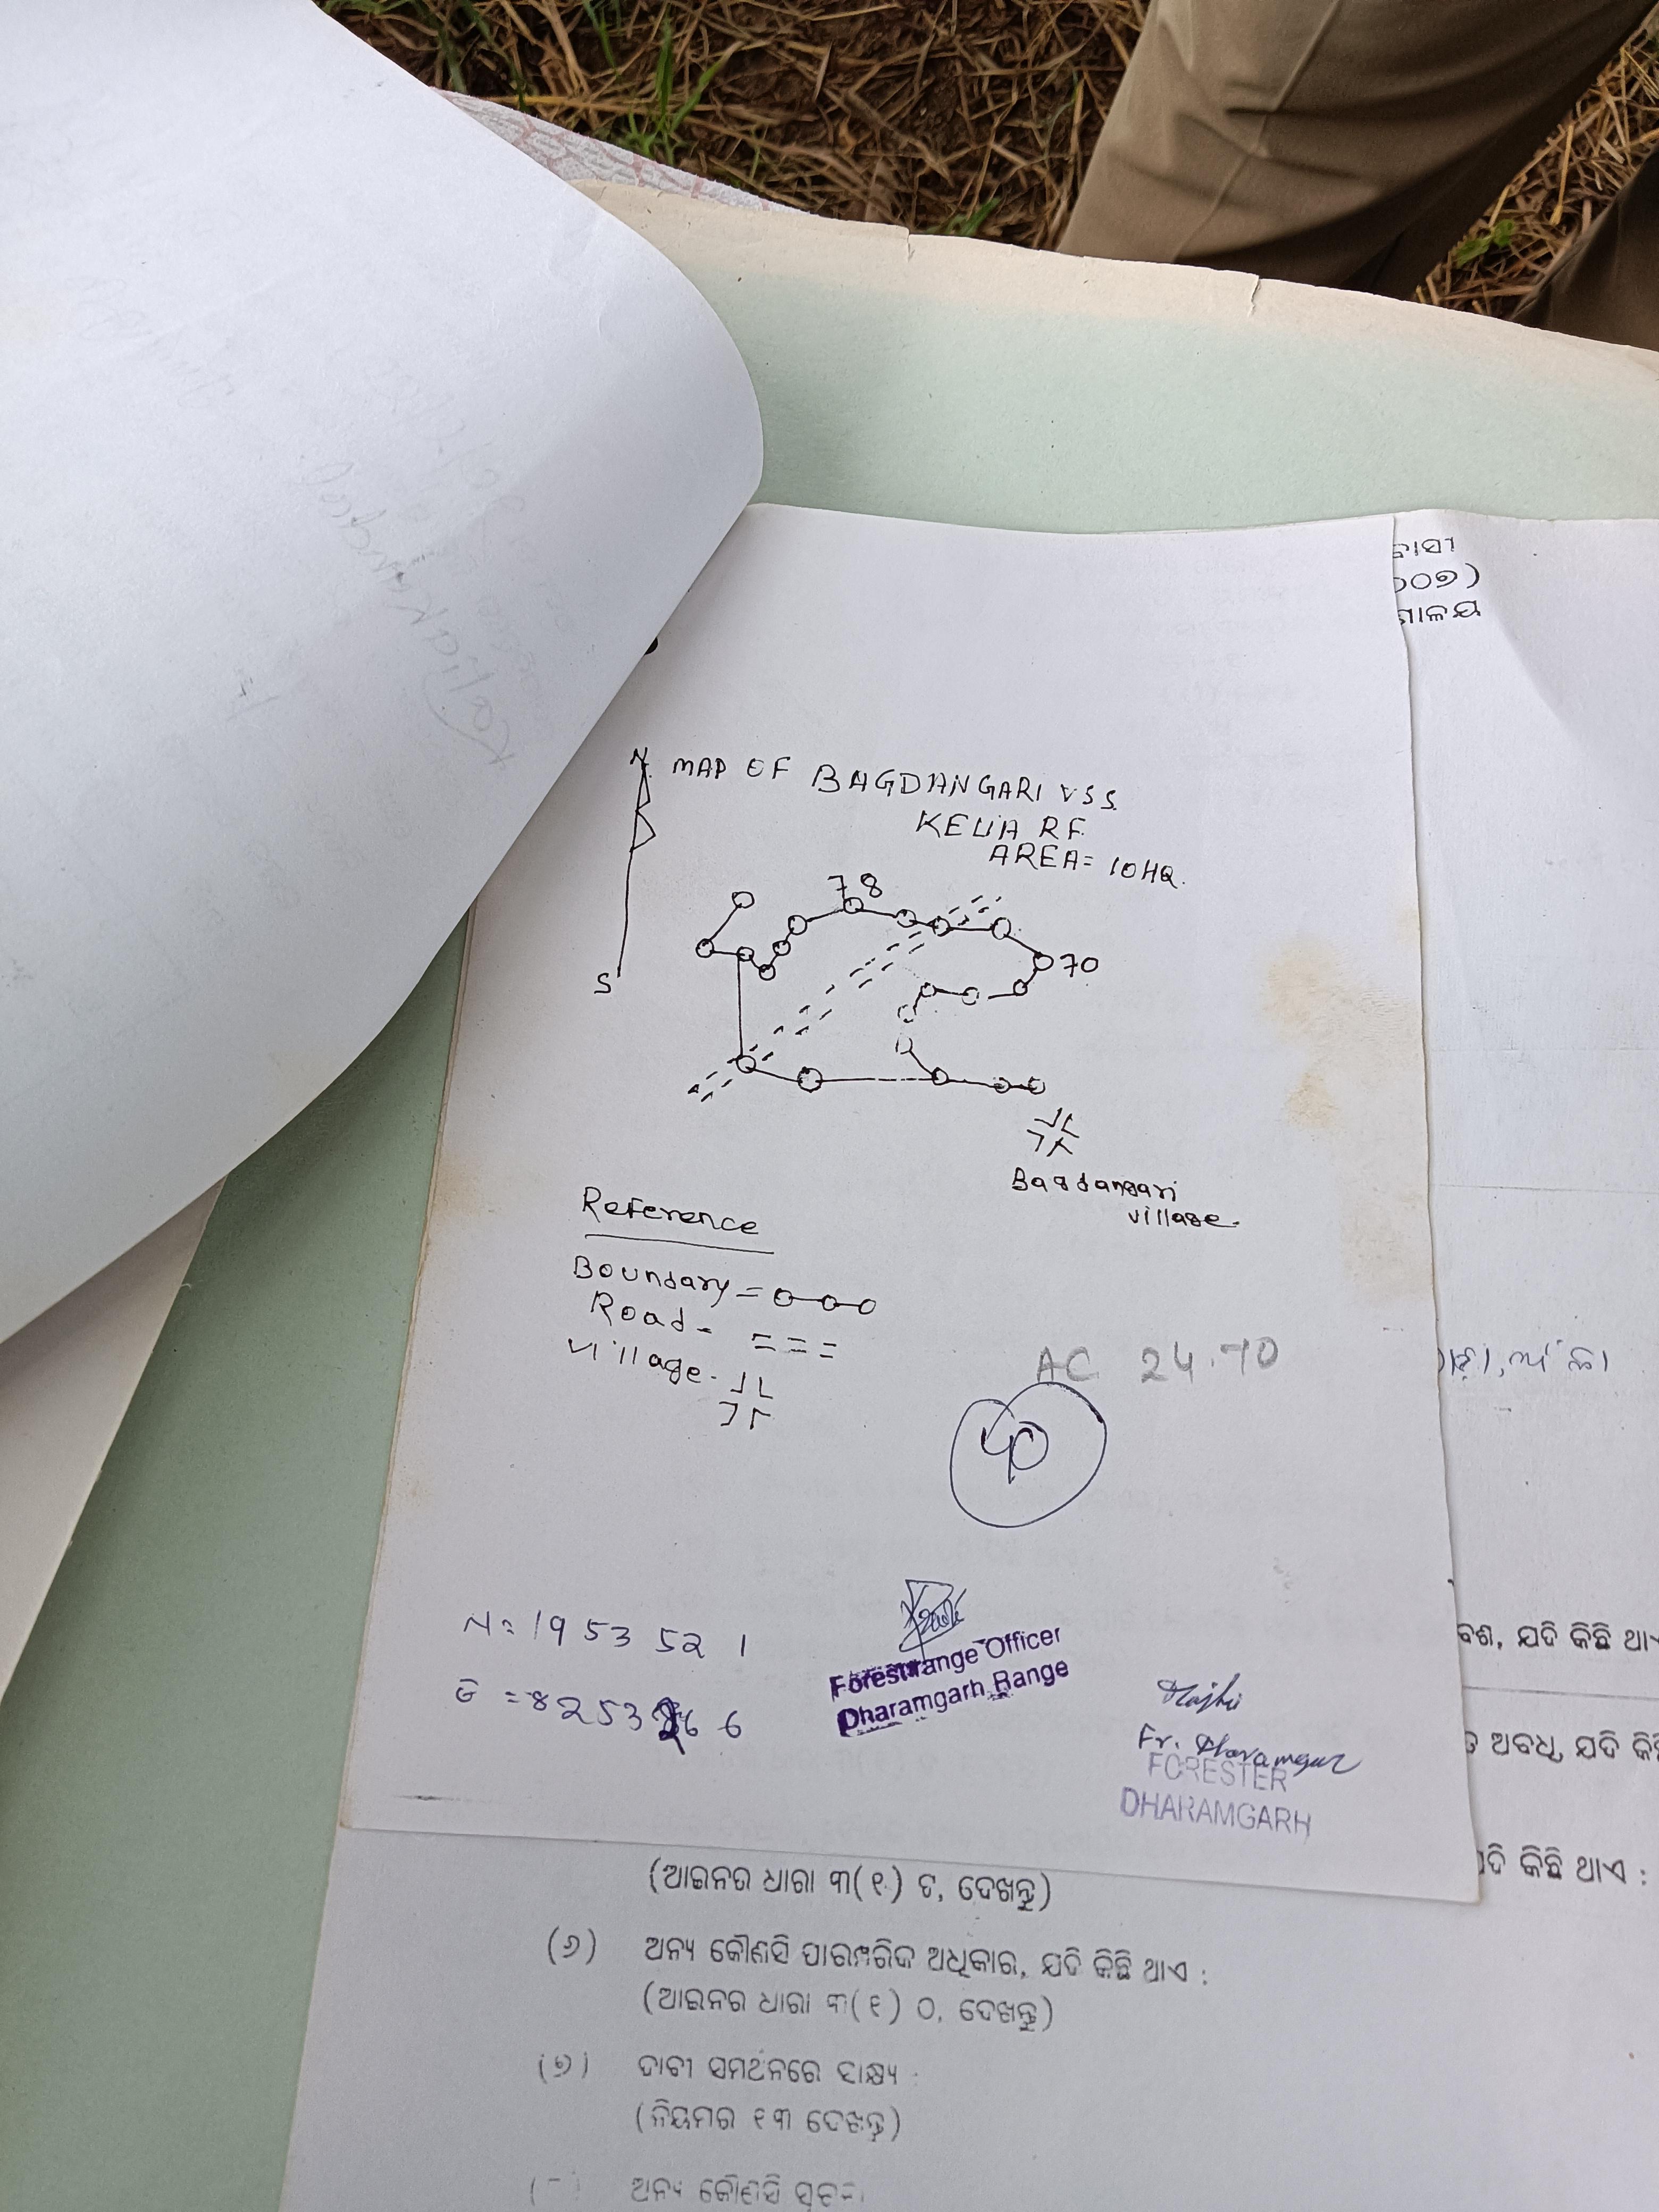 N
MAP OF BAGDANGARI VSS.
KELIA RF.
AREA= 10HQ.
78
70
S
Bagdangari
village.
Reference
Boundary =
Road-
village.
AC 24.70
N= 19 53 52 1
E = 8253 6 6
Forest range Officer
Dharamgarh Range
Majhi
Fr. Dharamgar
FORESTER
DHARAMGARH
ବାସୀ
୨୦୦୭)
ଣାଳୟ
ବଶ, ଯଦି କିଛି ଥା
ଅବଧି, ଯଦି କି
ଯଦି କିଛି ଥାଏ :
(ଆଇନର ଧାରା ୩(୧) ଟ, ଦେଖନ୍ତୁ)
(୬) ଅନ୍ୟ କୌଣସି ପାରମ୍ପରିକ ଅଧିକାର, ଯଦି କିଛି ଥାଏ :
(ଆଇନର ଧାରା ୩(୧) ଠ, ଦେଖନ୍ତୁ)
(୭) ଦାବୀ ସମର୍ଥନରେ ସାକ୍ଷ୍ୟ :
(ନିୟମର ୧୩ ଦେଖନ୍ତୁ)
ଅନ୍ୟ କୌଣସି